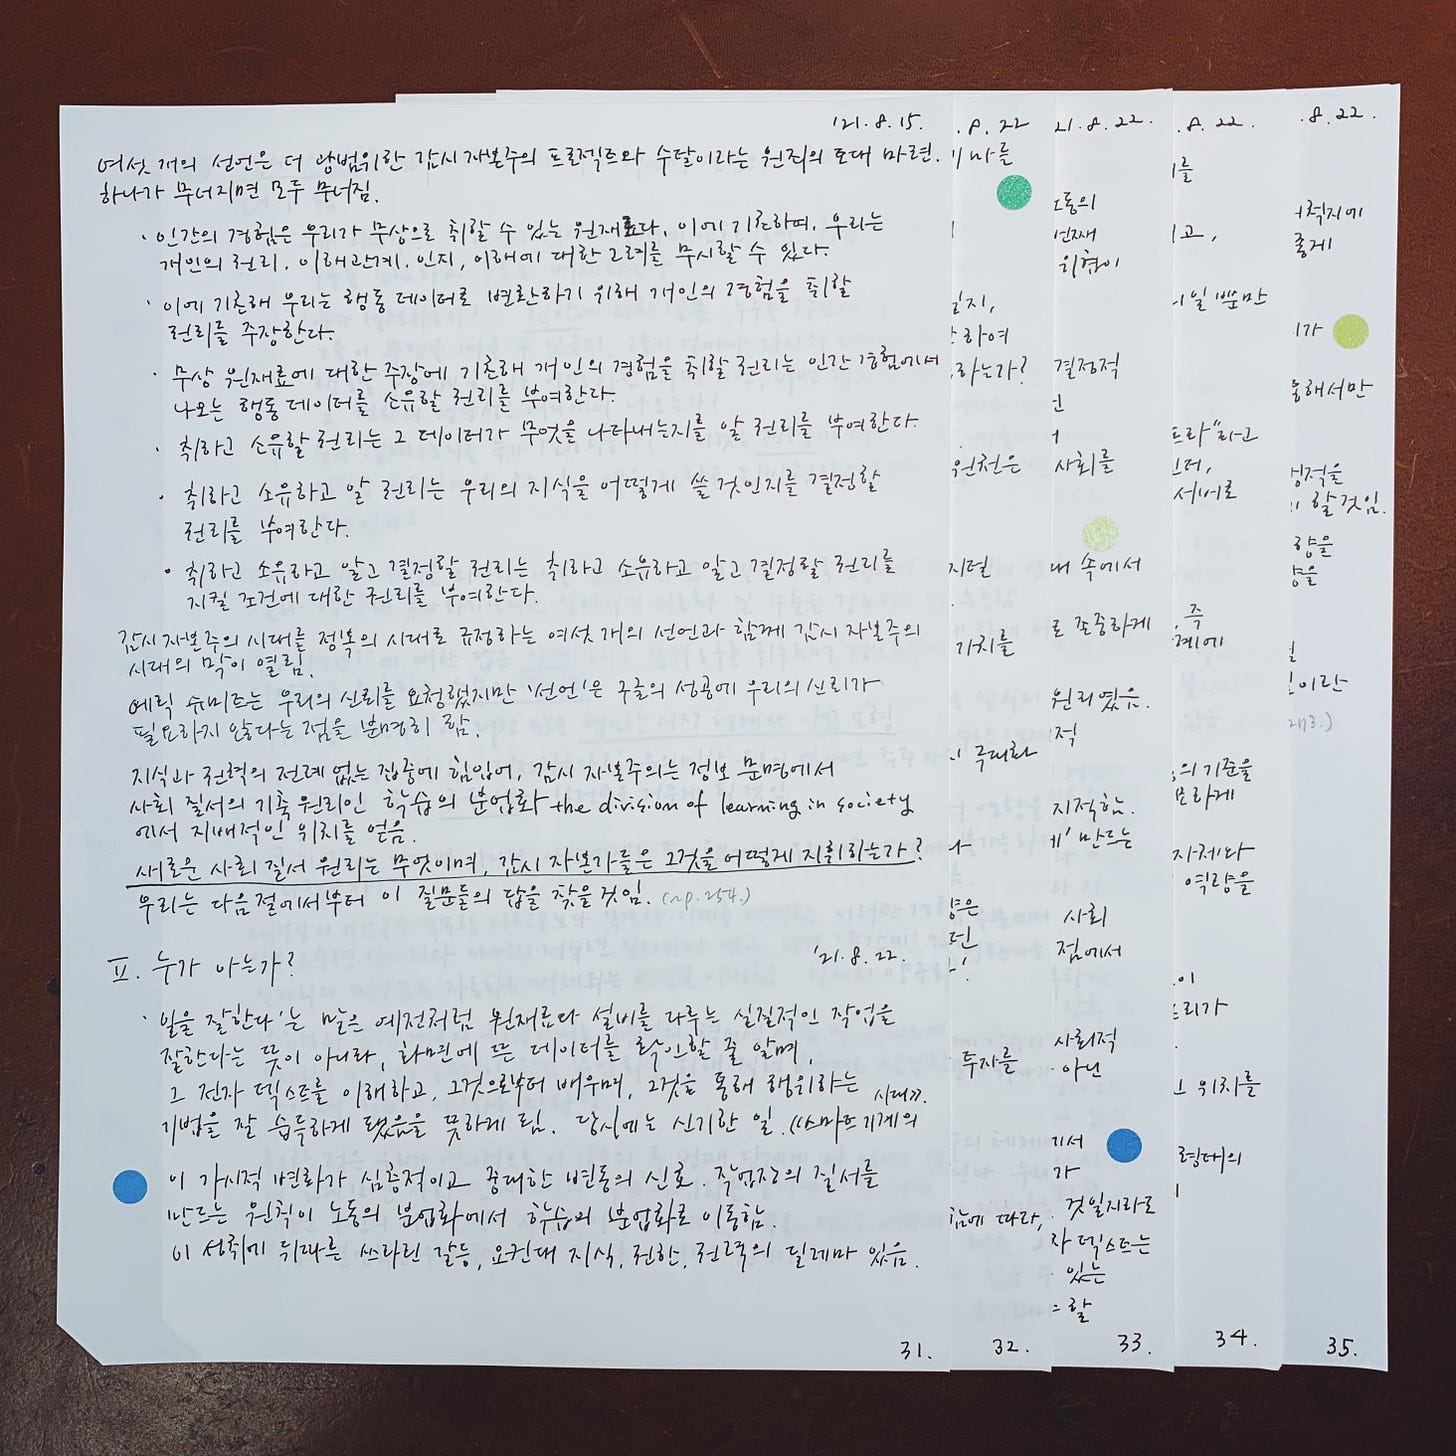 '21. 8. 15.
여섯 개의 선언은 더 광범위한 감시 자본주의 프로젝트와 수탈이라는 원죄의 토대 마련.
하나가 무너지면 모두 무너짐.
· 인간의 경험은 우리가 무상으로 취할 수 있는 원재료다. 이에 기초하여, 우리는
개인의 권리, 이해관계, 인지, 이해에 대한 고려를 무시할 수 있다.
· 이에 기초해 우리는 행동 데이터로 변환하기 위해 개인의 경험을 취할
권리를 주장한다.
· 무상 원재료에 대한 주장에 기초해 개인의 경험을 취할 권리는 인간 경험에서
나오는 행동 데이터를 소유할 권리를 부여한다.
· 취하고 소유할 권리는 그 데이터가 무엇을 나타내는지를 알 권리를 부여한다.
· 취하고 소유하고 알 권리는 우리의 지식을 어떻게 쓸 것인지를 결정할
권리를 부여한다.
· 취하고 소유하고 알고 결정할 권리는 취하고 소유하고 알고 결정할 권리를
지킬 조건에 대한 권리를 부여한다.
감시 자본주의 시대를 정복의 시대로 규정하는 여섯 개의 선언과 함께 감시 자본주의
시대의 막이 열림.
에릭 슈미츠는 우리의 신뢰를 요청했지만 '선언'은 구글의 성공에 우리의 신뢰가
필요하지 않다는 점을 분명히 함.
지식과 권력의 전례 없는 집중에 힘입어, 감시 자본주의는 정보 문명에서
사회 질서의 기축 원리인 학습의 분업화 the division of learning in society
에서 지배적인 위치를 얻음.
새로운 사회 질서 원리는 무엇이며, 감시 자본가들은 그것을 어떻게 지휘하는가?
우리는 다음 절에서부터 이 질문들의 답을 찾을 것임. (~p.254.)
Ⅱ. 누가 아는가?
'21. 8. 22.
· '일을 잘한다'는 말은 예전처럼 원재료와 설비를 다루는 실질적인 작업을
잘한다는 뜻이 아니라, 화면에 뜬 데이터를 확인할 줄 알며,
그 전자 텍스트를 이해하고, 그것으로부터 배우며, 그것을 통해 행위하는
기법을 잘 습득하게 됐음을 뜻하게 됨. 당시에는 신기한 일. 《스마트 기계의
시대》.
이 가시적 변화가 심층적이고 중대한 변동의 신호. 작업장의 질서를
만드는 원칙이 노동의 분업화에서 학습의 분업화로 이동함.
이 성취에 뒤따른 쓰라린 갈등, 요컨대 지식, 권한, 권력의 딜레마 있음.
31.
. 8. 22
하여
하는가?
원천은
가치를
극대화
투자를
따라,
32.
21. 8. 22.
위협이
결정적
사회를
속에서
로 존중하게
원리였음.
적
지적함.
만드는
사회
점에서
사회적
아닌
가
것일지라도
텍스트는
있는
할
33.
. 8. 22.
를
고,
일 뿐만
트라"라고
서버로
즉
의 기준을
자체다
역량을
위치를
34.
. 8. 22.
가
통해서만
할 것임.
이란
35.